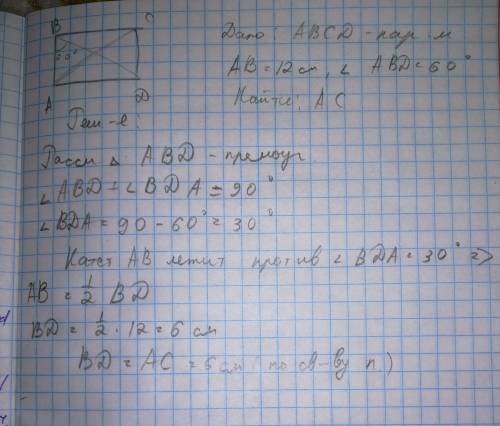 B C
60°
A D
Дано: ABCD - пар. м
AB = 12 см, ∠ ABD = 60°
Найти: AC
Реш-е:
Рассм △ ABD - прямоуг
∠ABD + ∠BDA = 90°
∠BDA = 90 - 60° = 30°
Катет AB лежит против ∠ BDA = 30° =>
AB = 1/2 BD
BD = 1/2 · 12 = 6 см
BD = AC = 6 см (по св-ву п.)